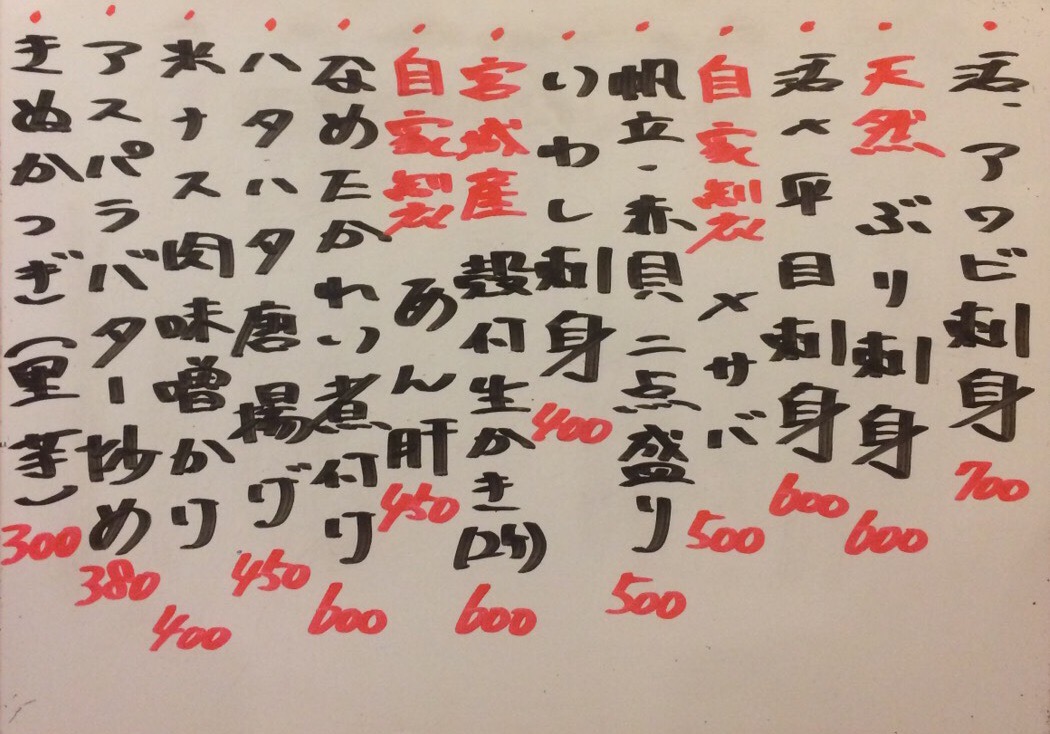 活〆アワビ刺身 700
天然 ぶり刺身 600
活〆平目刺身 600
自家製 〆サバ 500
帆立・赤貝二点盛り 500
いわし刺身 400
宮城産 殻付生かき(2ケ) 600
自家製 あん肝 450
なめたかれい煮付け 600
ハタハタ唐揚げ 450
米ナス肉味噌かけ 400
アスパラバター炒め 380
きぬかつぎ(里芋) 300